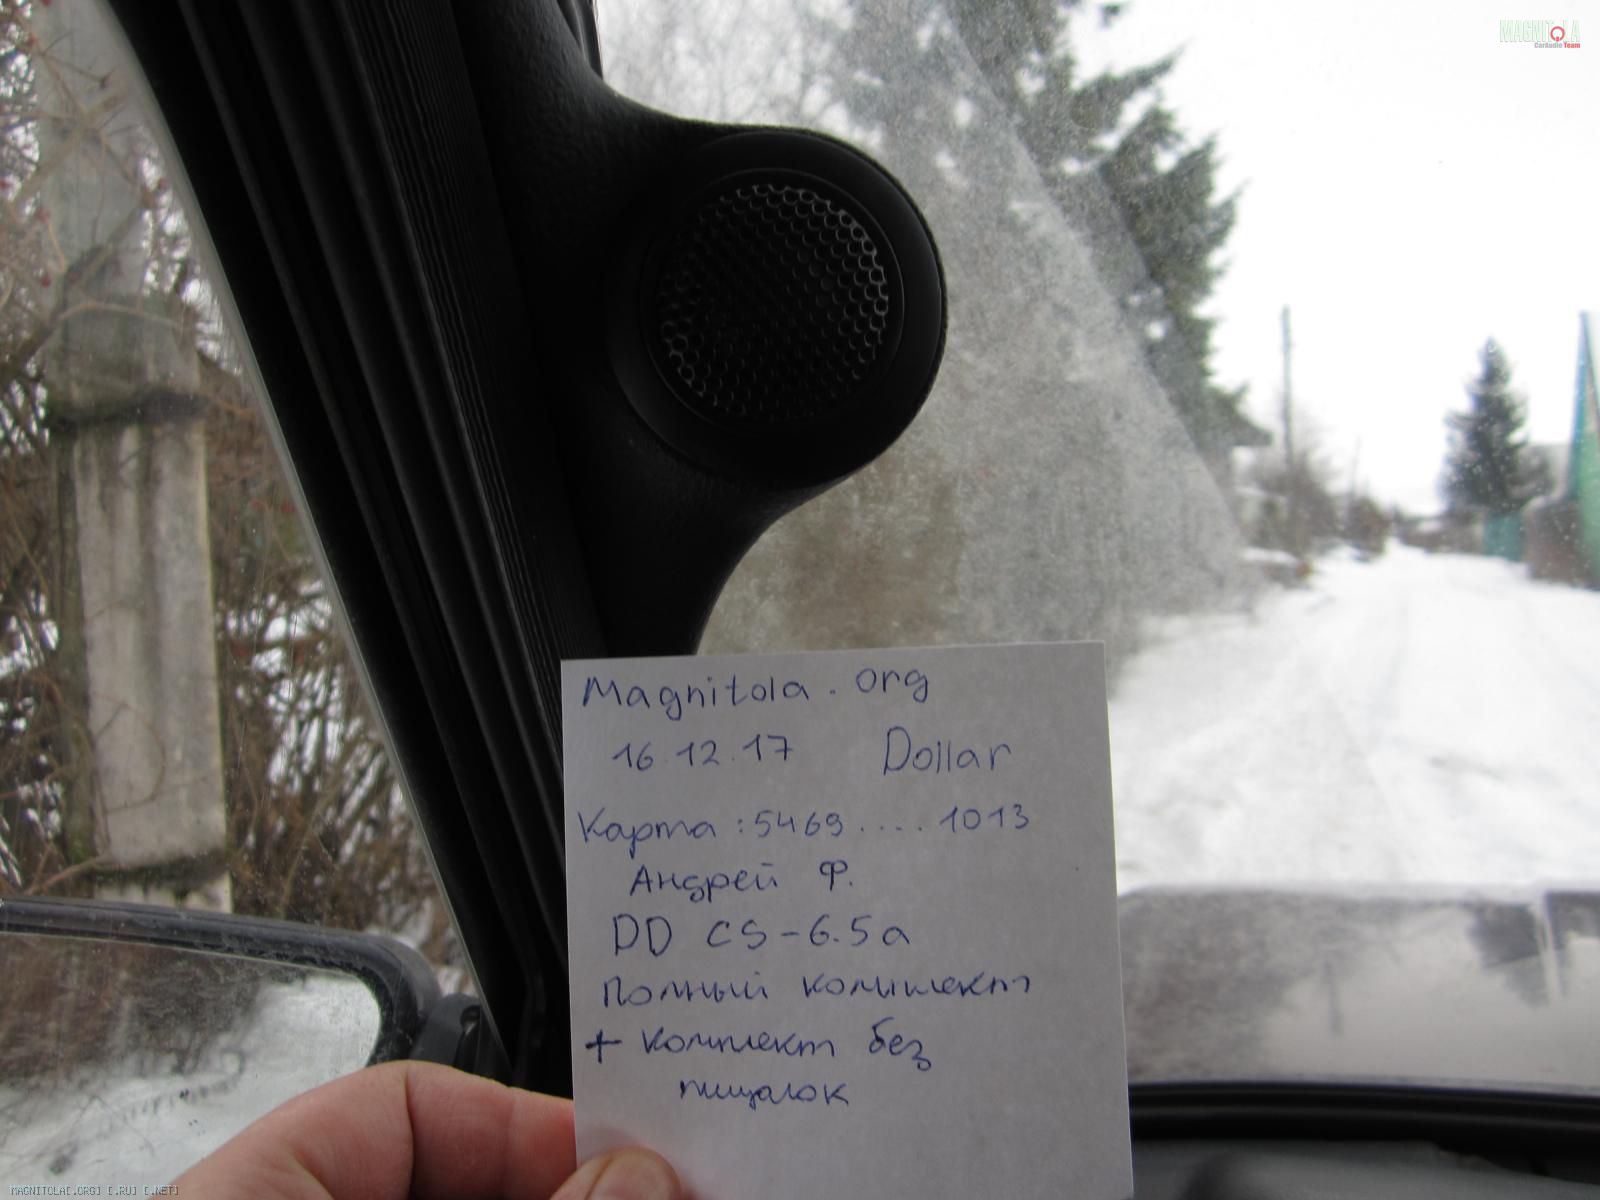 MAGNITOLA
CarAudio Team
Magnitola.org
16.12.17 Dollar
Карта : 5469 .... 1013
Андрей Ф.
DD CS-6.5a
Полный комплект
+ комплект без
пищалок
MAGNITOLA[.ORG] [.RU] [.NET]